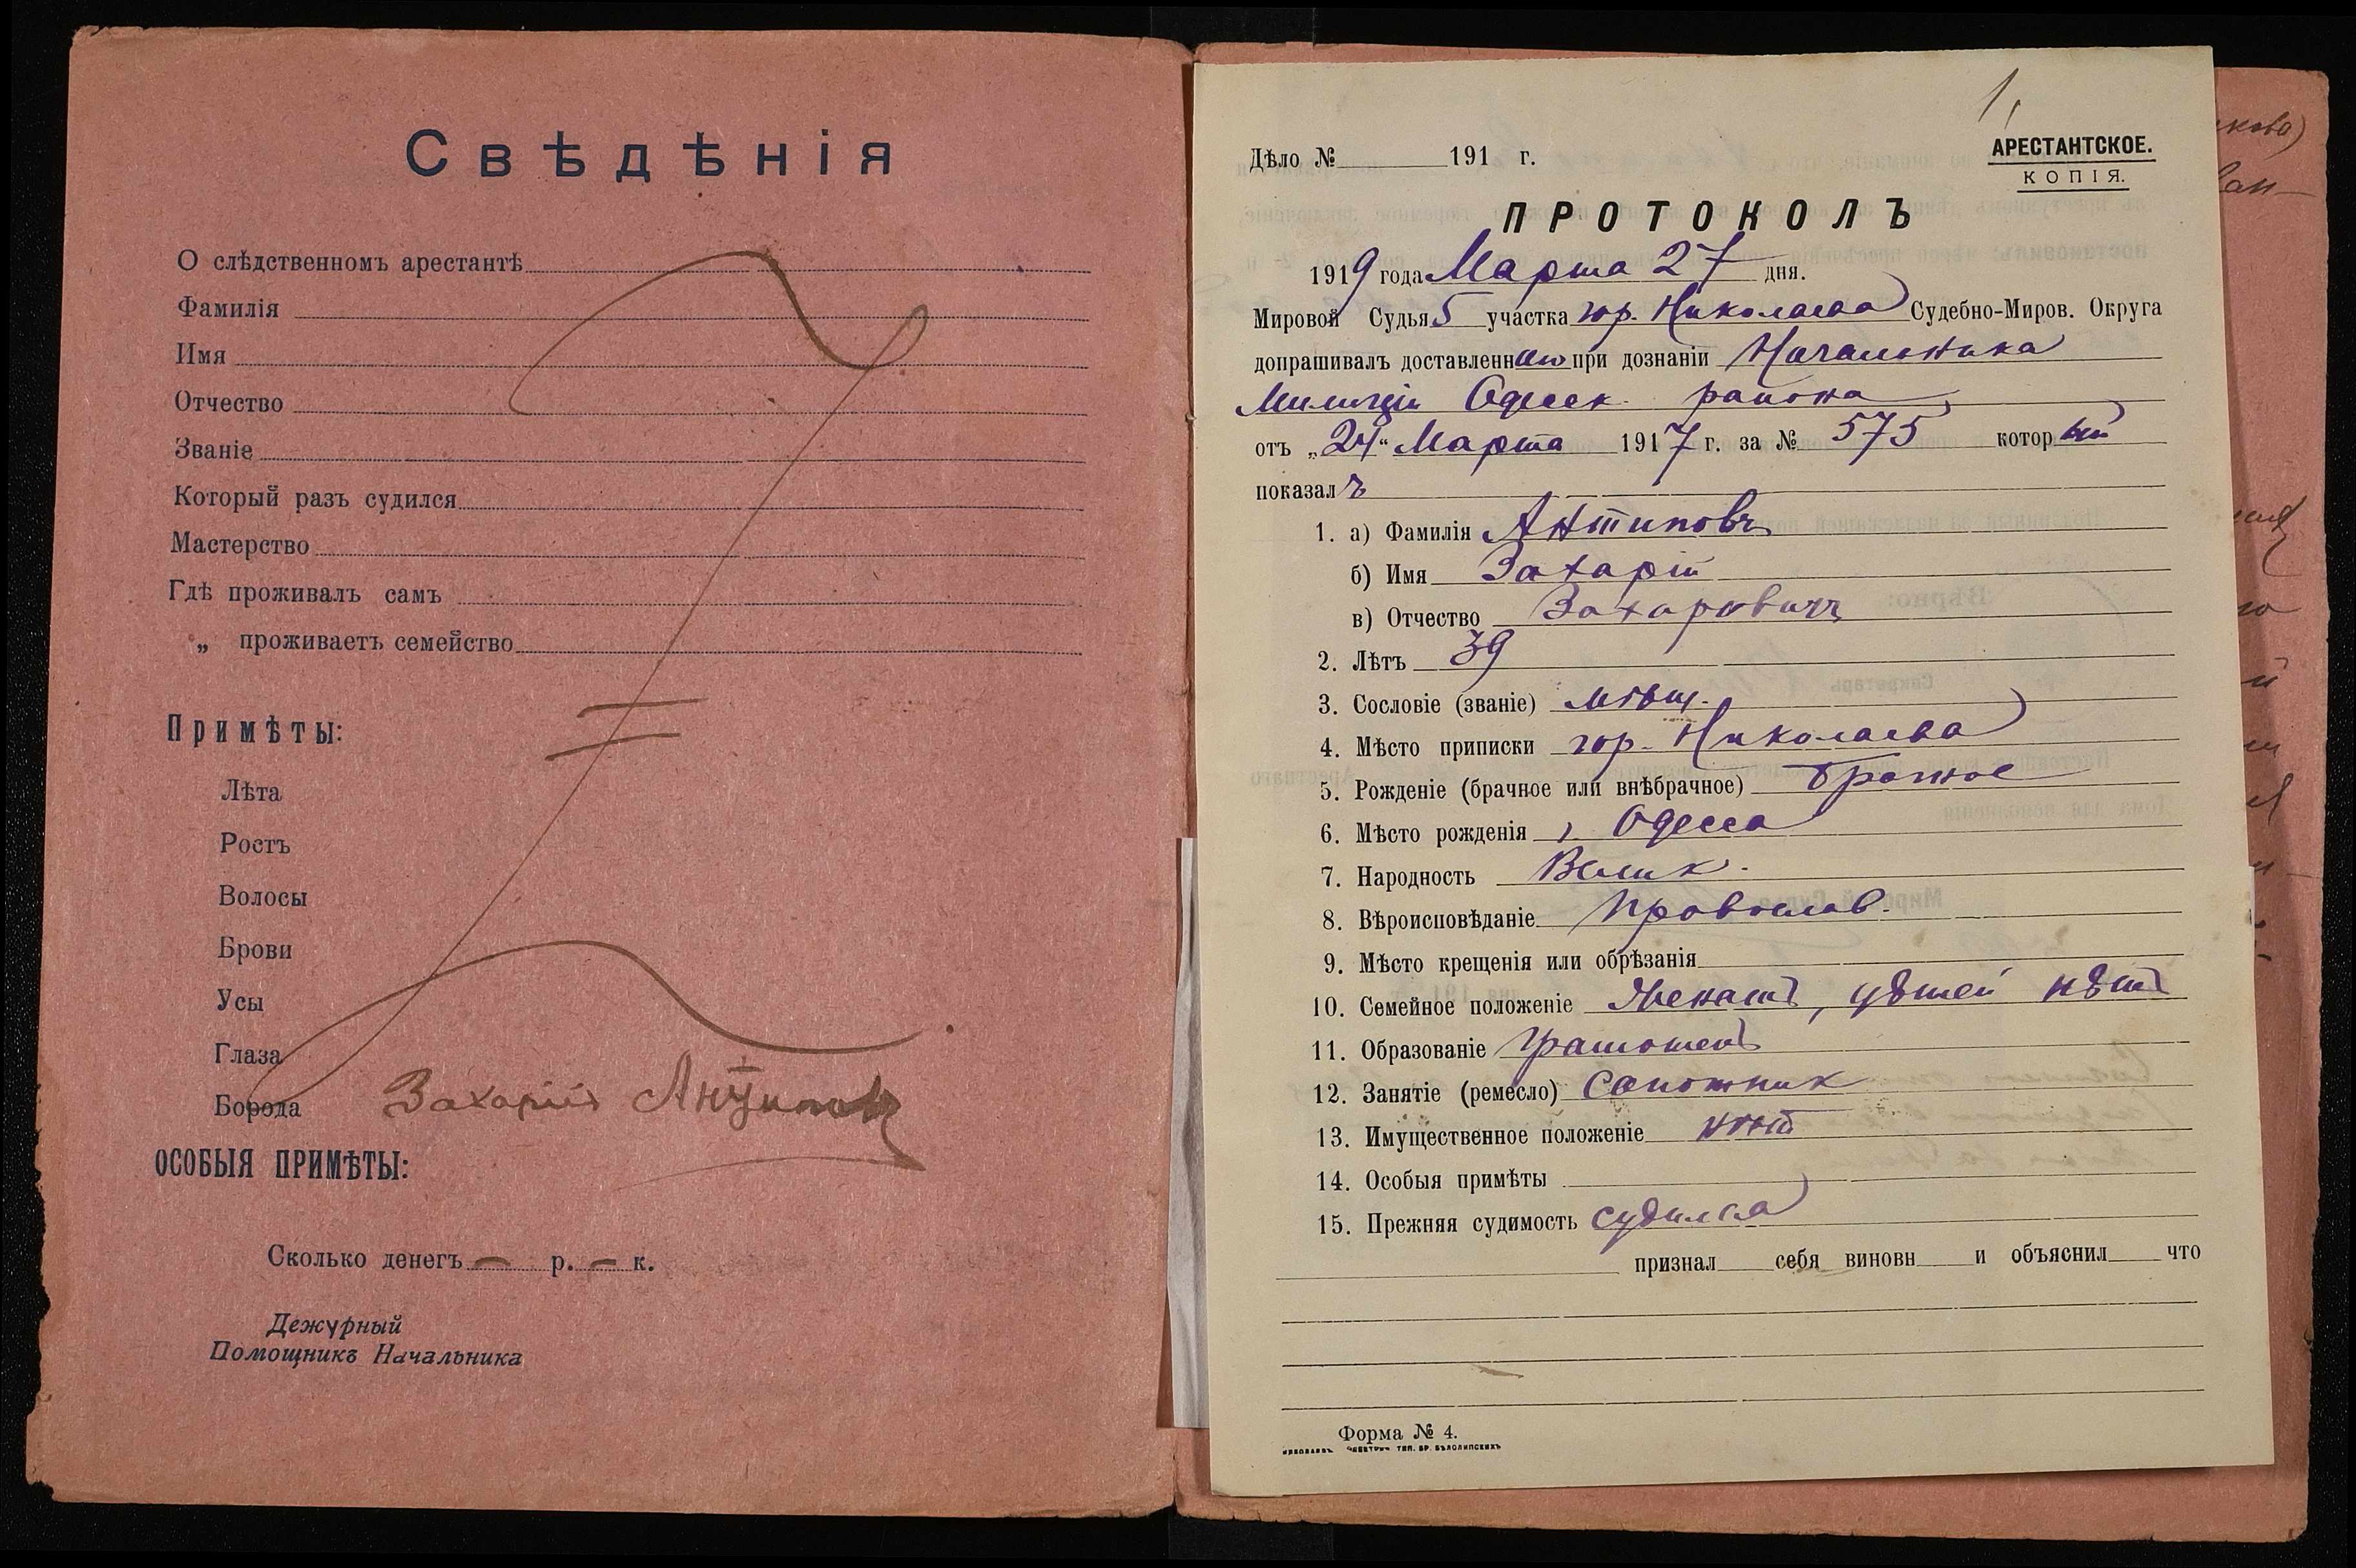 Свѣдѣнія
О слѣдственномъ арестантѣ
Фамилія
Имя
Отчество
Званіе
Который разъ судился
Мастерство
Гдѣ проживалъ самъ
„ проживаетъ семейство
Примѣты:
Лѣта
Ростъ
Волосы
Брови
Усы
Глаза
Борода
Захарій Антиповъ
ОСОБЫЯ ПРИМѢТЫ:
Сколько денегъ — р. — к.
Дежурный
Помощникъ Начальника
1,
Дѣло № 191 г.
АРЕСТАНТСКОЕ.
КОПІЯ.
ПРОТОКОЛЪ
1919 года Марта 27 дня.
Мировой Судья 5 участка гор. Николаева Судебно-Миров. Округа
допрашивалъ доставленнаго при дознаніи Начальника
Милиціи Одесск. района
отъ „24“ Марта 1917 г. за № 575 который
показалъ
1. а) Фамилія Антиповъ
б) Имя Захарій
в) Отчество Захаровичъ
2. Лѣтъ 39
3. Сословіе (званіе) мѣщ.
4. Мѣсто приписки гор. Николаева
5. Рожденіе (брачное или внѣбрачное) брачное
6. Мѣсто рожденія г. Одесса
7. Народность Велик.
8. Вѣроисповѣданіе Православ.
9. Мѣсто крещенія или обрѣзанія
10. Семейное положеніе Женатъ, дѣтей нѣтъ
11. Образованіе Грамотенъ
12. Занятіе (ремесло) Сапожник
13. Имущественное положеніе нѣтъ
14. Особыя примѣты
15. Прежняя судимость судился
признал себя виновн и объяснил что
Форма № 4.